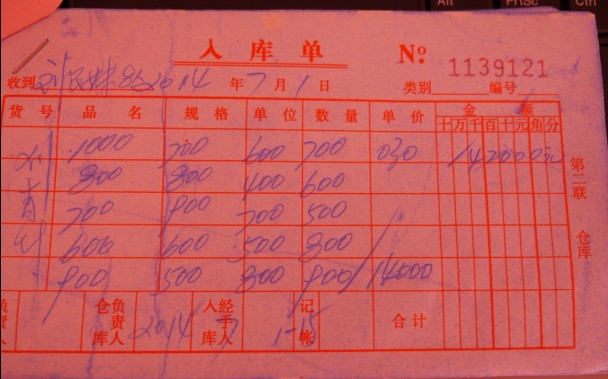 Alt PrtSc Ctrl
入库单 No. 1139121
收到 2014年7月1日 类别 编号
货号 品名 规格 单位 数量 单价 金额
十万千百十元角分
1000 700 600 700 030 142000元
800 800 400 600
700 900 700 500
600 600 500 800
900 500 800 900 14000
第二联 仓库
负责人 仓库负责人 2014 入库经手人 7 记帐 1-15 合计